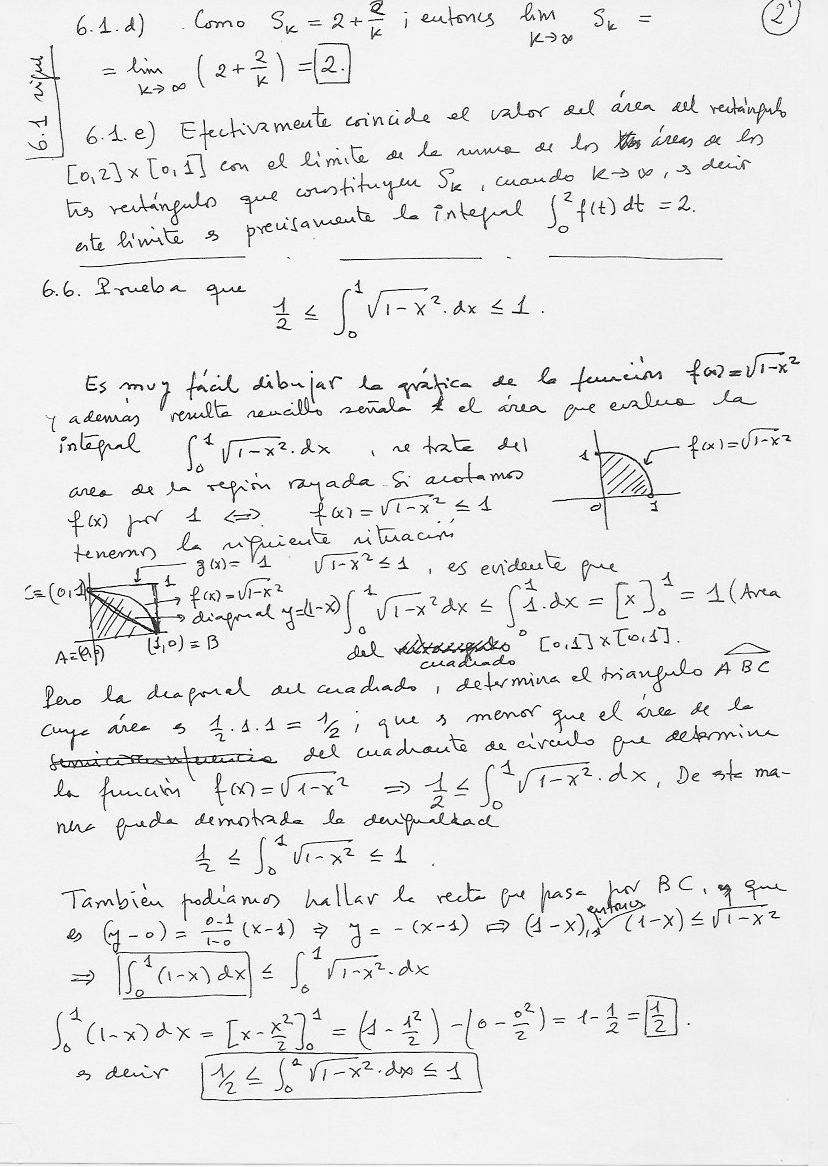 6.1.d) Como S_k = 2 + 2/k ; entonces lim_{k→∞} S_k =
(2')
6.1 sigue
= lim_{k→∞} (2 + 2/k) = 2.
6.1.e) Efectivamente coincide el valor del área del rectángulo
[0,2]x[0,1] con el límite de la suma de los áreas de los
tres rectángulos que constituyen S_k, cuando k→∞, es decir
este límite es precisamente la integral ∫_0^2 f(t) dt = 2.
6.6. Prueba que
1/2 ≤ ∫_0^1 √1-x². dx ≤ 1.
Es muy fácil dibujar la gráfica de la función f(x)=√1-x²
y además resulta sencillo señala el área que evalua la
integral ∫_0^1 √1-x². dx, se trata del
area de la región rayada. Si acotamos
f(x) por 1 ⇔ f(x)=√1-x² ≤ 1
tenemos la siguiente situación
1
f(x)=√1-x²
0
1
g(x)= 1 √1-x² ≤ 1, es evidente que
C=(0,1)
1
1
f(x)=√1-x²
diagonal y=(1-x)
A=(0,0)
(1,0)=B
∫_0^1 √1-x² dx ≤ ∫_0^1 1.dx = [x]_0^1 = 1 (Area
del cuadrado [0,1]x[0,1].
Pero la diagonal del cuadrado, determina el triangulo ABC
cuya área es 1/2.1.1 = 1/2; que es menor que el área de la
semicircunferencia del cuadrante de círculo que determina
la función f(x)=√1-x² ⇒ 1/2 ≤ ∫_0^1 √1-x². dx, De esta ma-
nera queda demostrada la desigualdad
1/2 ≤ ∫_0^1 √1-x² ≤ 1.
También podíamos hallar la recta que pasa por BC, que
es (y-0) = 0-1/1-0 (x-1) ⇒ y = -(x-1) ⇒ (1-x), entonces (1-x) ≤ √1-x²
⇒ ∫_0^1 (1-x) dx ≤ ∫_0^1 √1-x². dx
∫_0^1 (1-x) dx = [x - x²/2]_0^1 = (1 - 1²/2) - (0 - 0²/2) = 1 - 1/2 = 1/2.
es decir 1/2 ≤ ∫_0^1 √1-x². dx ≤ 1